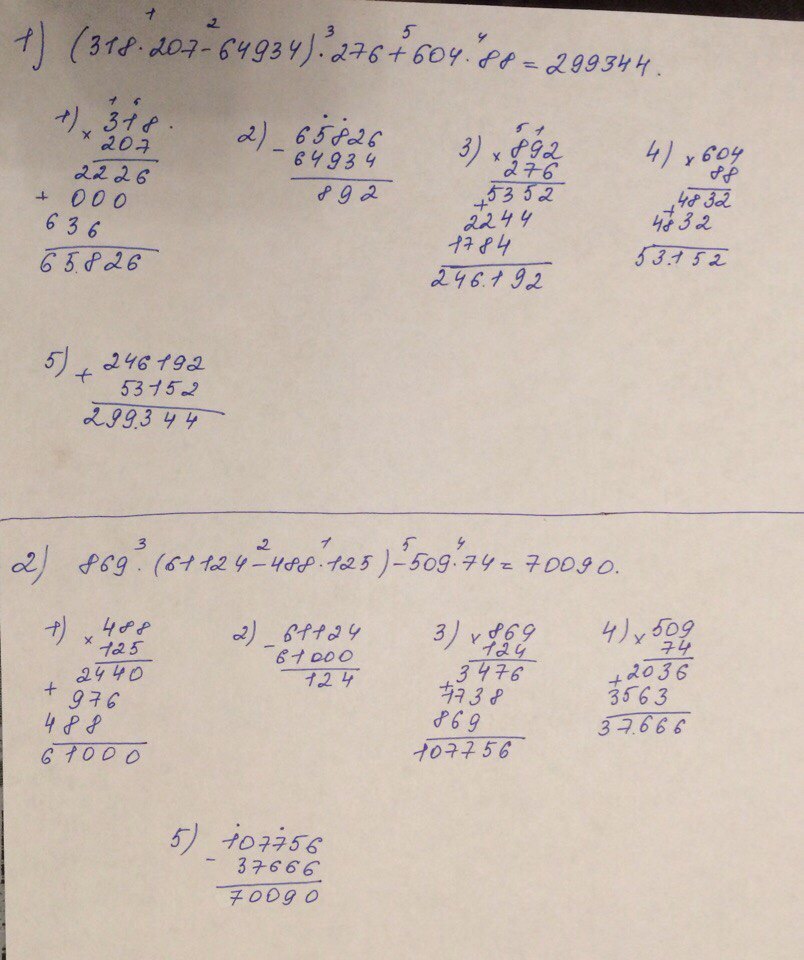 1) (318 · 207 - 64934) · 276 + 604 · 88 = 299344.
1 2 3 5 4
1) × 318
1 6
207
2226
+ 000
636
65.826
2) - 65826
64934
892
3) × 892
5 1
276
5352
+
2244
1784
246.192
4) × 604
88
4832
+
4832
53.152
5) + 246192
53152
299.344
2) 869 · (61124 - 488 · 125) - 509 · 74 = 70090.
3 2 1 5 4
1) × 488
125
2440
+ 976
488
61000
2) - 61124
61000
124
3) × 869
124
3476
+
1738
869
107756
4) × 509
74
2036
+
3563
37.666
5) - 107756
37666
70090